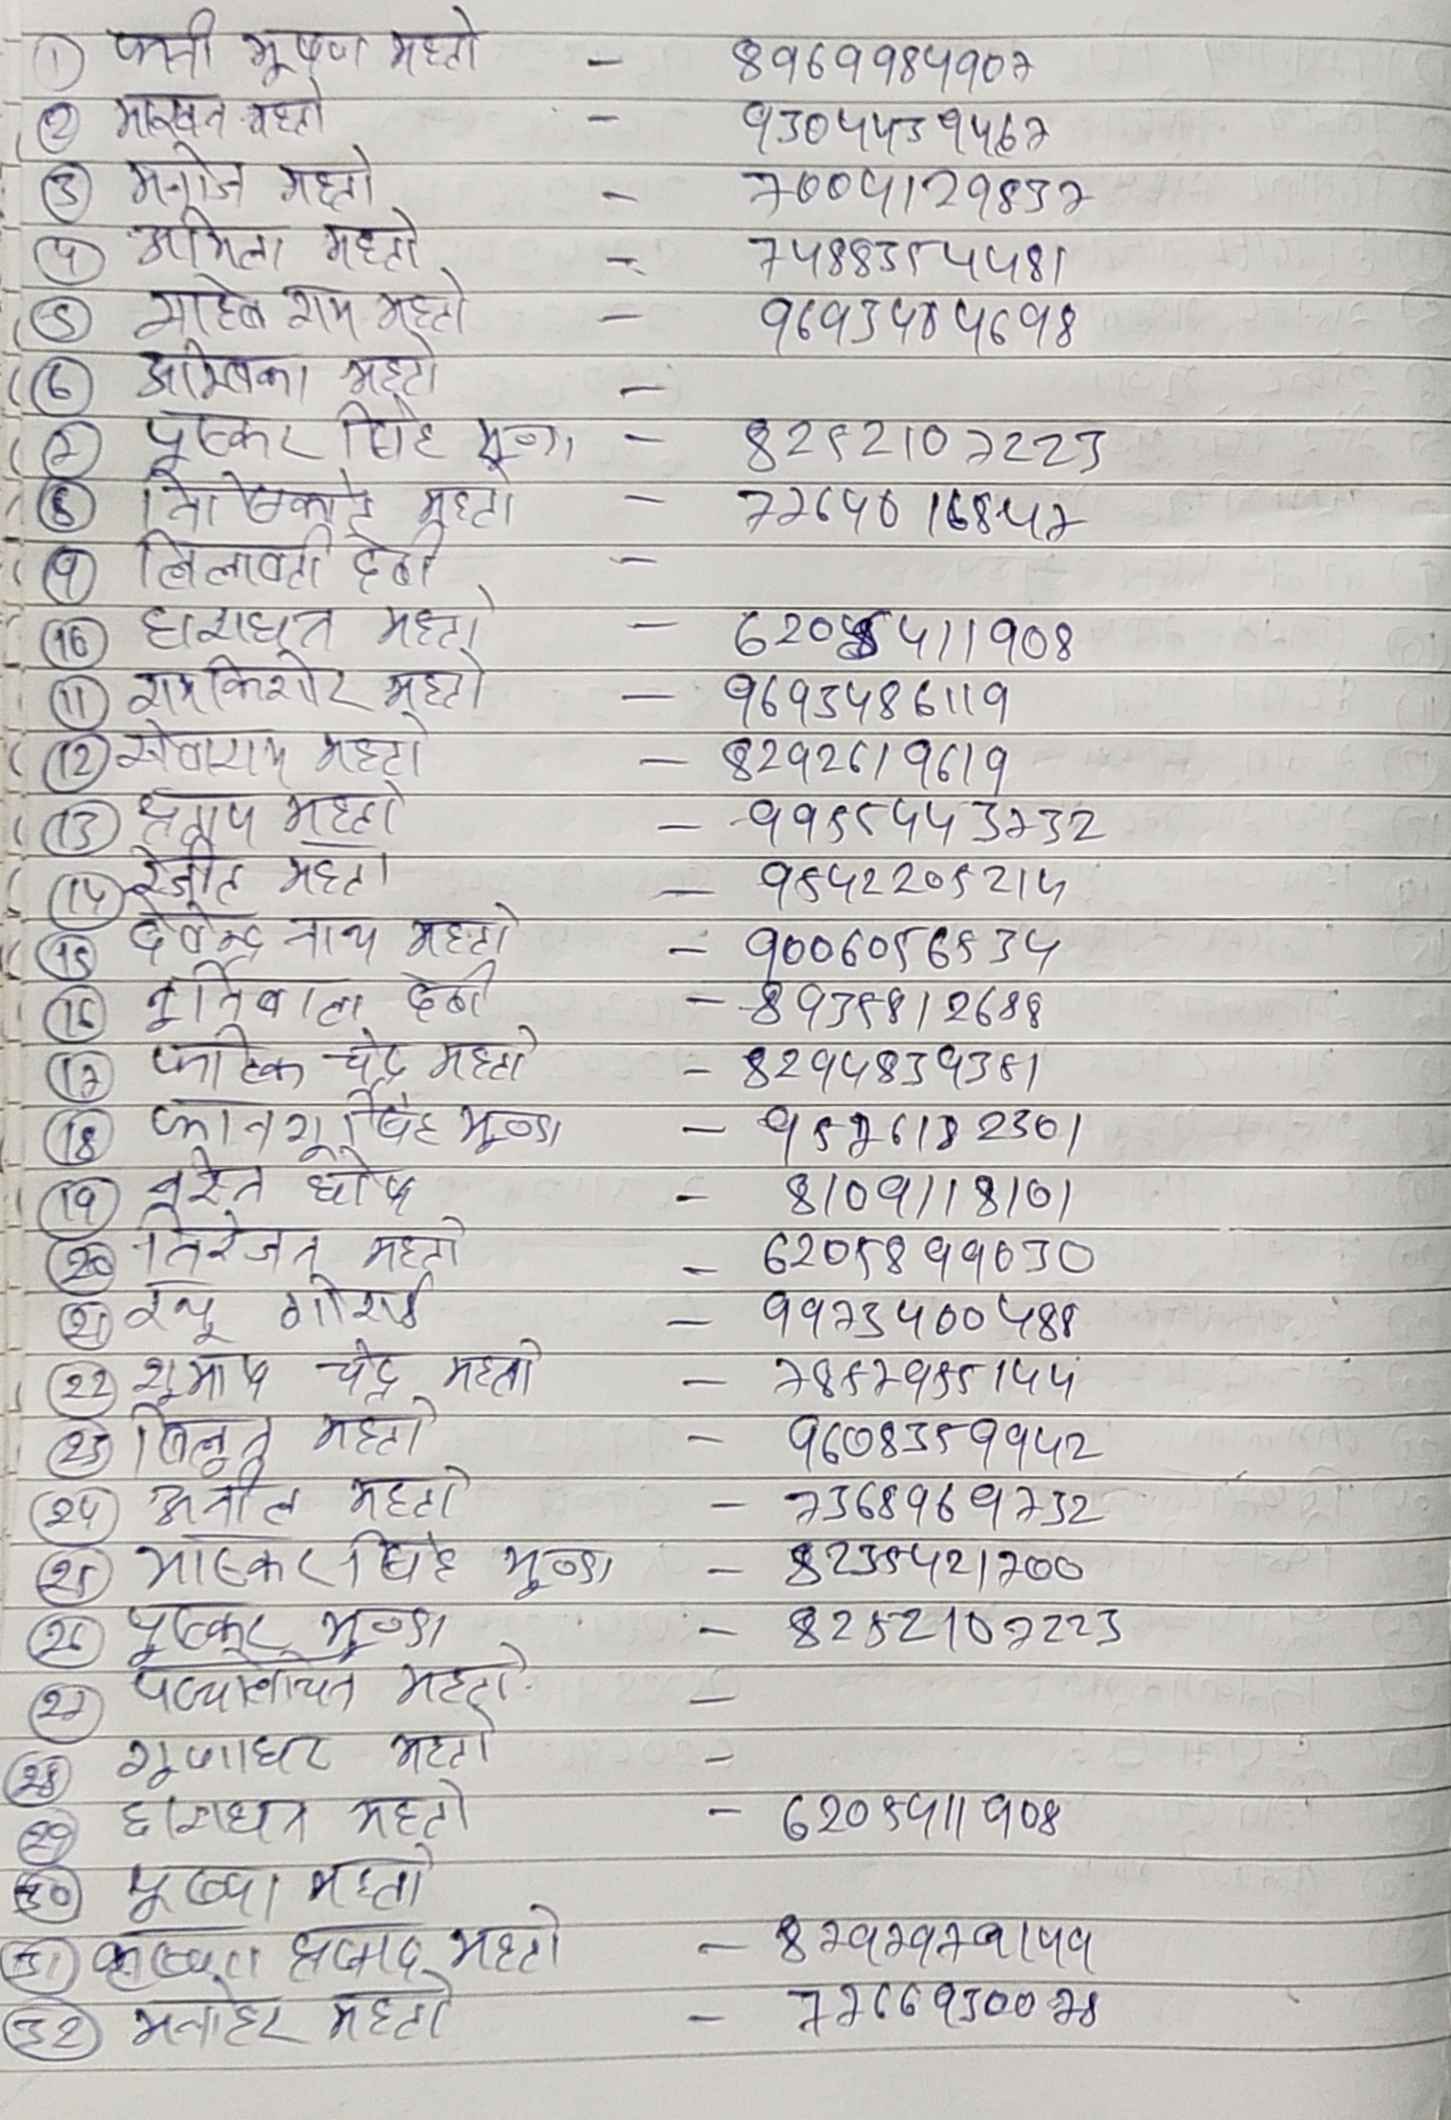 ① फनी भूषण महतो - 8969984907
② माखन महतो - 9304439467
③ मनोज महतो - 7004129837
④ अमिला महतो - 7488354481
⑤ साहेब राम महतो - 9693484698
⑥ अम्बिका महतो -
⑦ पुष्कर सिंह मुण्डा - 8252107223
⑧ महतो - 7764016847
⑨ लिलावती देवी -
⑩ हाराधन महतो - 6205411908
⑪ रामकिशोर महतो - 9693486119
⑫ सेवाराम महतो - 8292619619
⑬ महतो - 9955443732
⑭ रंजीत महतो - 9542205214
⑮ देवेन्द्र नाथ महतो - 9006056534
⑯ देवी - 8935812688
⑰ फटिक चंद्र महतो - 8294839351
⑱ सिंह मुण्डा - 9576182301
⑲ घोष - 8109118101
⑳ निरंजन महतो - 6205899030
㉑ गोराई - 9973400488
㉒ सुभाष चंद्र महतो - 7857955144
㉓ महतो - 9608359942
㉔ अनील महतो - 7368969732
㉕ भास्कर सिंह मुण्डा - 8235421700
㉖ पुष्कर मुण्डा - 8252107223
㉗ महतो -
㉘ गुणाधर महतो -
㉙ हाराधन महतो - 6205411908
㉚ महतो
㉛ प्रसाद महतो - 8797979149
㉜ मनोहर महतो - 7766930078